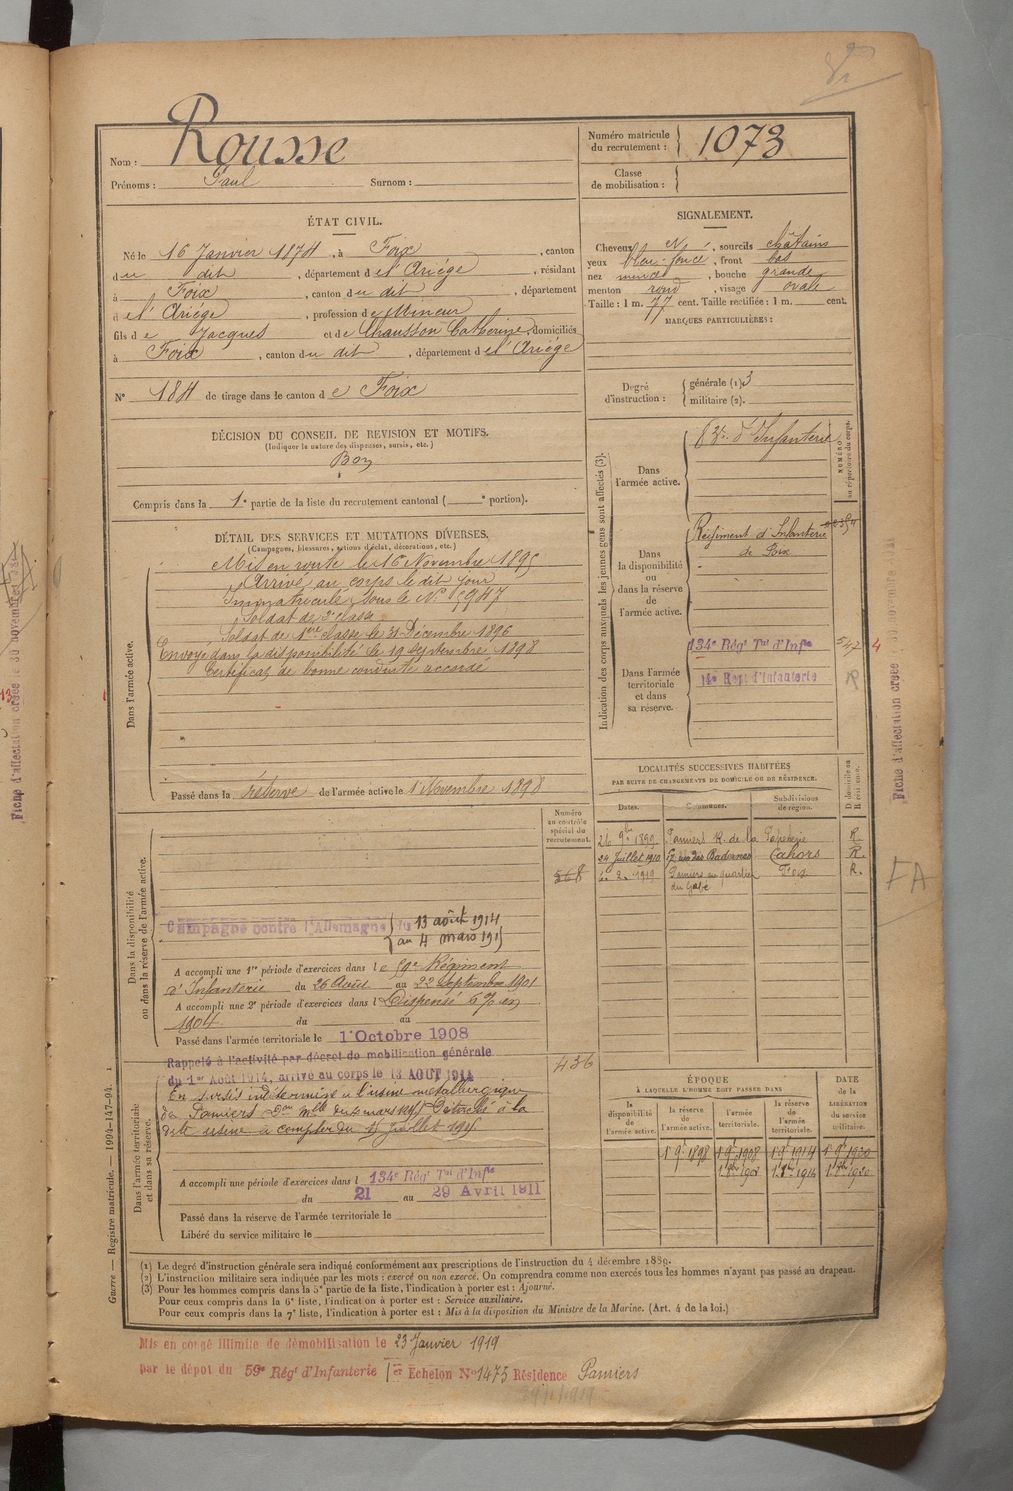 Rousse
Nom :
Prénoms : Paul Surnom :
Numéro matricule
du recrutement : 1073
Classe
de mobilisation :
ÉTAT CIVIL.
Né le 16 Janvier 1874, à Foix, canton
du dit, département de l'Ariège, résidant
à Foix, canton du dit, département
de l'Ariège, profession de Mineur
fils de Jacques et de Chausson Catherine, domiciliés
à Foix, canton du dit, département de l'Ariège
N° 184 de tirage dans le canton de Foix
SIGNALEMENT.
Cheveux, sourcils châtains
yeux bleu-foncé, front bas
nez mince, bouche grande
menton rond, visage ovale
Taille : 1 m. 77 cent. Taille rectifiée : 1 m. cent.
MARQUES PARTICULIÈRES :
Degré
d'instruction :
générale (1) 3
militaire (2).
DÉCISION DU CONSEIL DE REVISION ET MOTIFS.
(Indiquer la nature des dispenses, sursis, etc.)
Bon
Compris dans la 1e partie de la liste du recrutement cantonal ( e portion).
DÉTAIL DES SERVICES ET MUTATIONS DIVERSES.
(Campagnes, blessures, actions d'éclat, décorations, etc.)
Dans l'armée active.
Mis en route le 16 Novembre 1895
Arrivé au corps le dit jour
Immatriculé sous le N° 5947
Soldat de 2e classe
Soldat de 1ère classe le 31 Décembre 1896
Envoyé dans la disponibilité le 19 septembre 1898
Certificat de bonne conduite accordé
Passé dans la réserve de l'armée active le 1 Novembre 1898
Indication des corps auxquels les jeunes gens sont affectés (3).
Dans
l'armée active.
d'Infanterie
NUMÉRO
au répertoire du corps.
Dans
la disponibilité
ou
dans la réserve
de
l'armée active.
Régiment d'Infanterie
de Foix
Dans l'armée
territoriale
et dans
sa réserve.
134e Régt Tal d'Infie
14e Regt d'Infanterie
547
R
4
Fiche d'affectation créée le 30 novembre
LOCALITÉS SUCCESSIVES HABITÉES
PAR SUITE DE CHANGEMENTS DE DOMICILE OU DE RÉSIDENCE.
Dates. Communes. Subdivisions
de région. D. domicile ou
R. résidence.
26 9bre 1899 Pamiers R. de la Papeterie R.
24 Juillet 1910 Cahors R.
1919 Pamiers au quartier Foix R.
FA
Numéro
au contrôle
spécial du
recrutement.
568
Dans la disponibilité
ou dans la réserve de l'armée active.
Campagne contre l'Allemagne du 13 août 1914
au 4 mars 1915
A accompli une 1re période d'exercices dans le 59e Régiment
d'Infanterie du 26 Août au 22 septembre 1901
A accompli une 2e période d'exercices dans l Dispensé en
1904 du au
Passé dans l'armée territoriale le 1 Octobre 1908
Dans l'armée territoriale
et dans sa réserve.
Rappelé à l'activité par décret de mobilisation générale
du 1er Août 1914, arrivé au corps le 13 AOUT 1914
436
En sursis indéterminé à l'usine métallurgique
de Pamiers Don Mlle du 4 mars 1915 Détaché à la
dite usine à compter du Juillet 1915
A accompli une période d'exercices dans l 134e Régt Tal d'Infie
du 21 au 29 Avril 1911
Passé dans la réserve de l'armée territoriale le
Libéré du service militaire le
ÉPOQUE
À LAQUELLE L'HOMME DOIT PASSER DANS
la
disponibilité
de
l'armée active.
la réserve
de
l'armée active.
l'armée
territoriale.
la réserve
de
l'armée
territoriale.
DATE
de la
LIBÉRATION
du service
militaire.
1 9bre 1898 1 9bre 1908 1 9bre 1914 1 9bre 1920
(1) Le degré d'instruction générale sera indiqué conformément aux prescriptions de l'instruction du 4 décembre 1889.
(2) L'instruction militaire sera indiquée par les mots : exercé ou non exercé. On comprendra comme non exercés tous les hommes n'ayant pas passé au drapeau.
(3) Pour les hommes compris dans la 5e partie de la liste, l'indication à porter est : Ajourné.
Pour ceux compris dans la 6e liste, l'indication à porter est : Service auxiliaire.
Pour ceux compris dans la 7e liste, l'indication à porter est : Mis à la disposition du Ministre de la Marine. (Art. 4 de la loi.)
Guerre — Registre matricule. — 1994-147-94.
Mis en congé illimité de démobilisation le 23 Janvier 1919
par le dépot du 59e Régt d'Infanterie Ier Echelon N° 1473 Résidence Pamiers